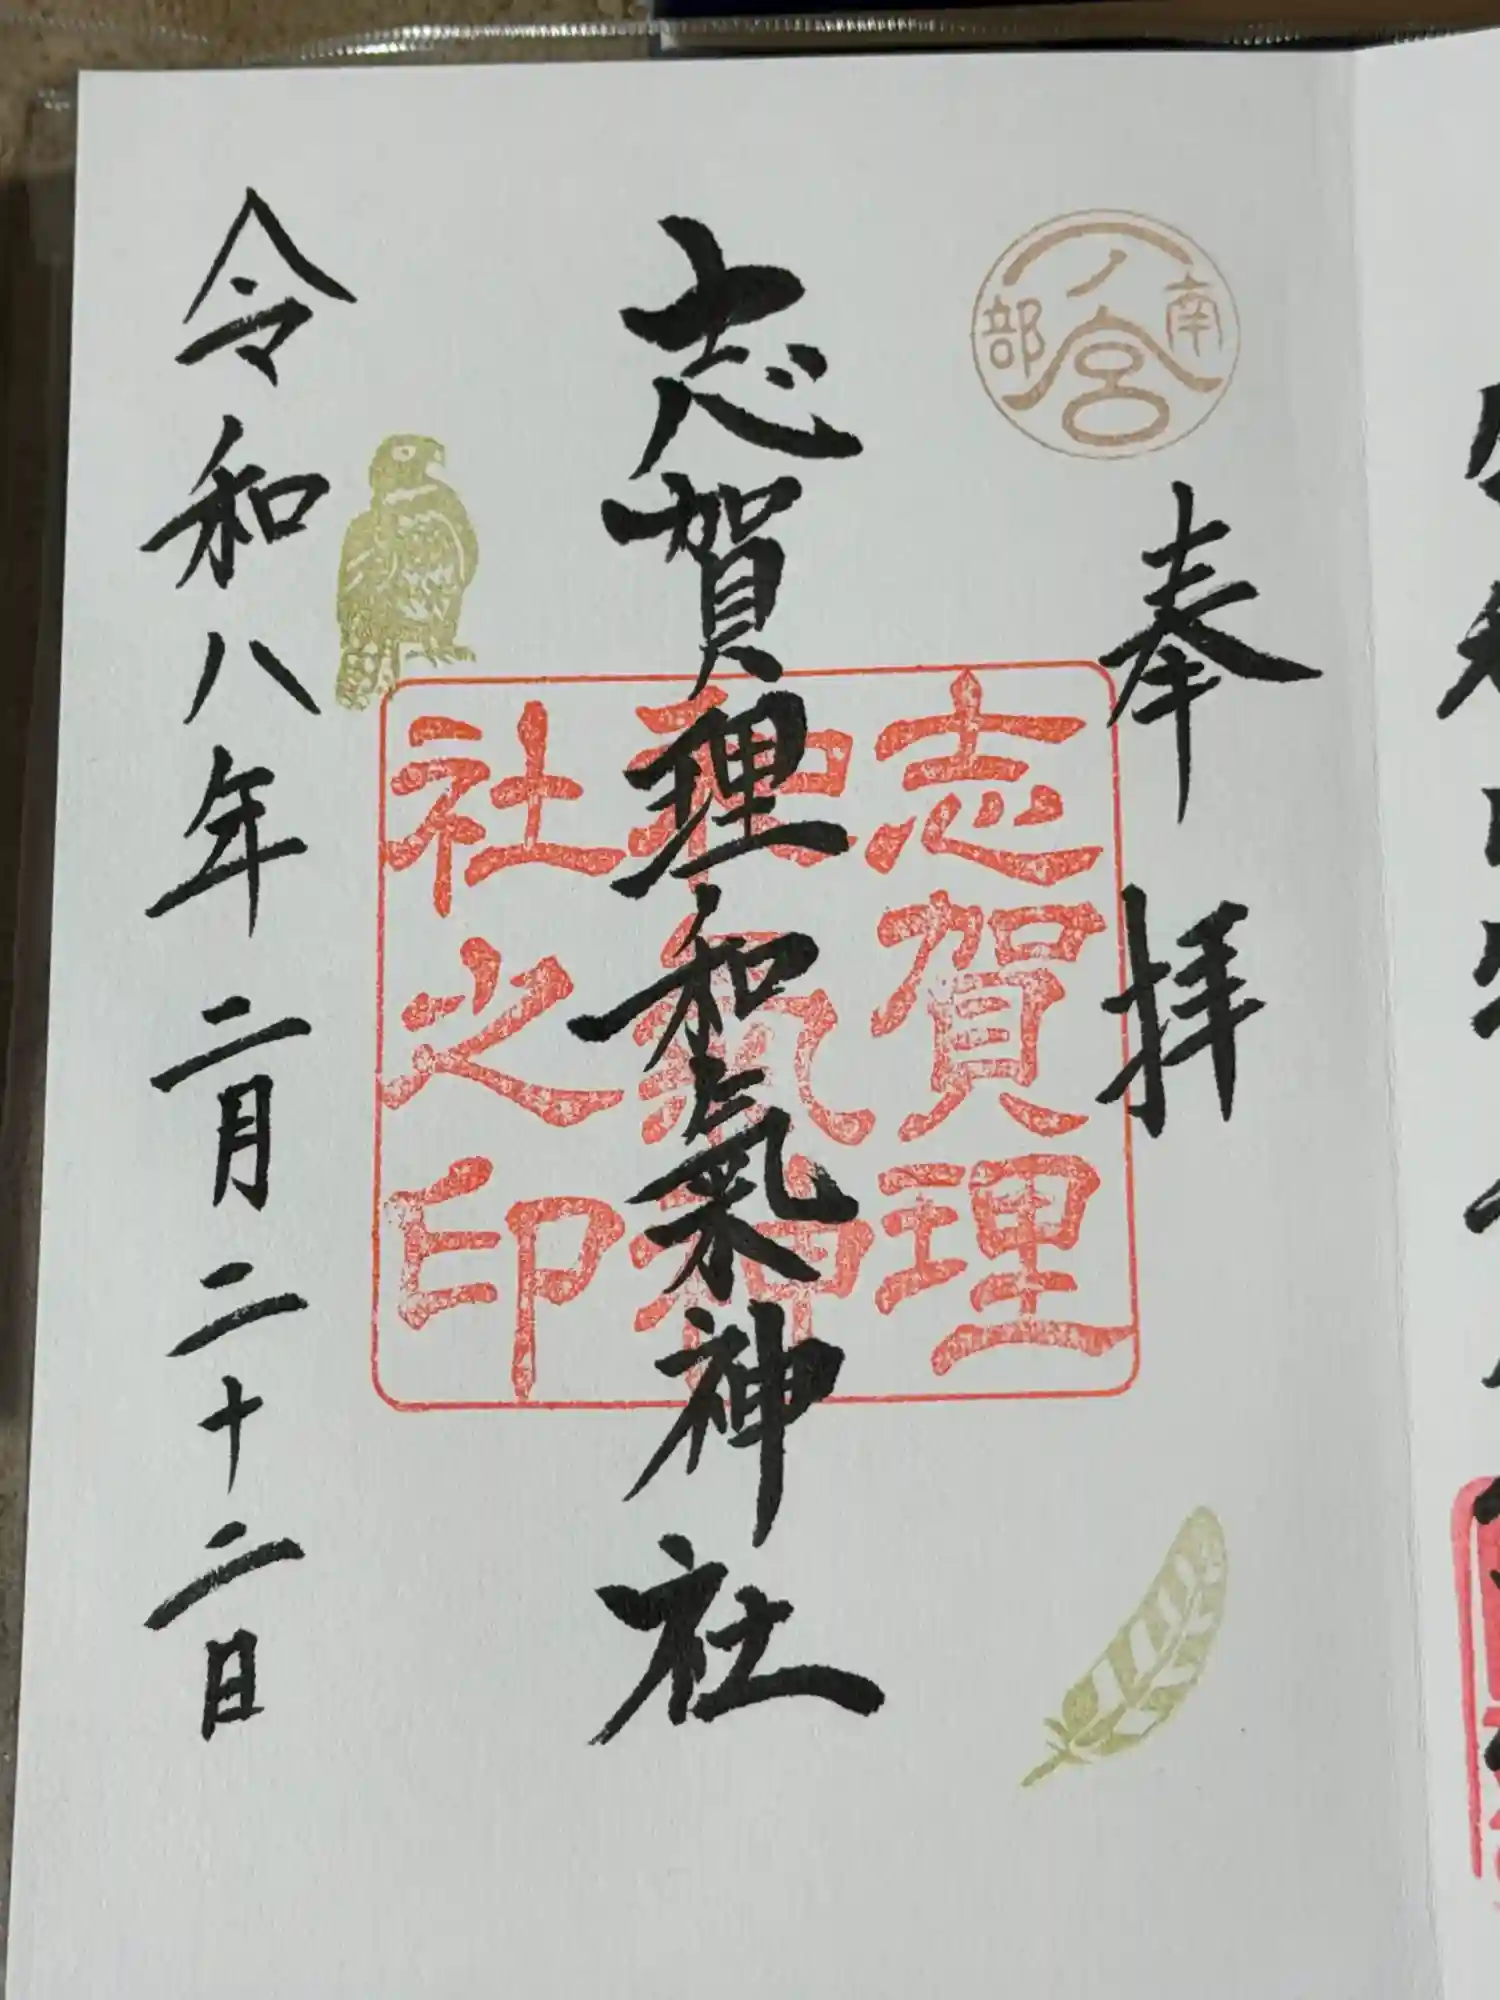 南部一ノ宮
奉拝
志賀理和氣神社
志賀理
和氣神
社之印
令和八年二月二十二日